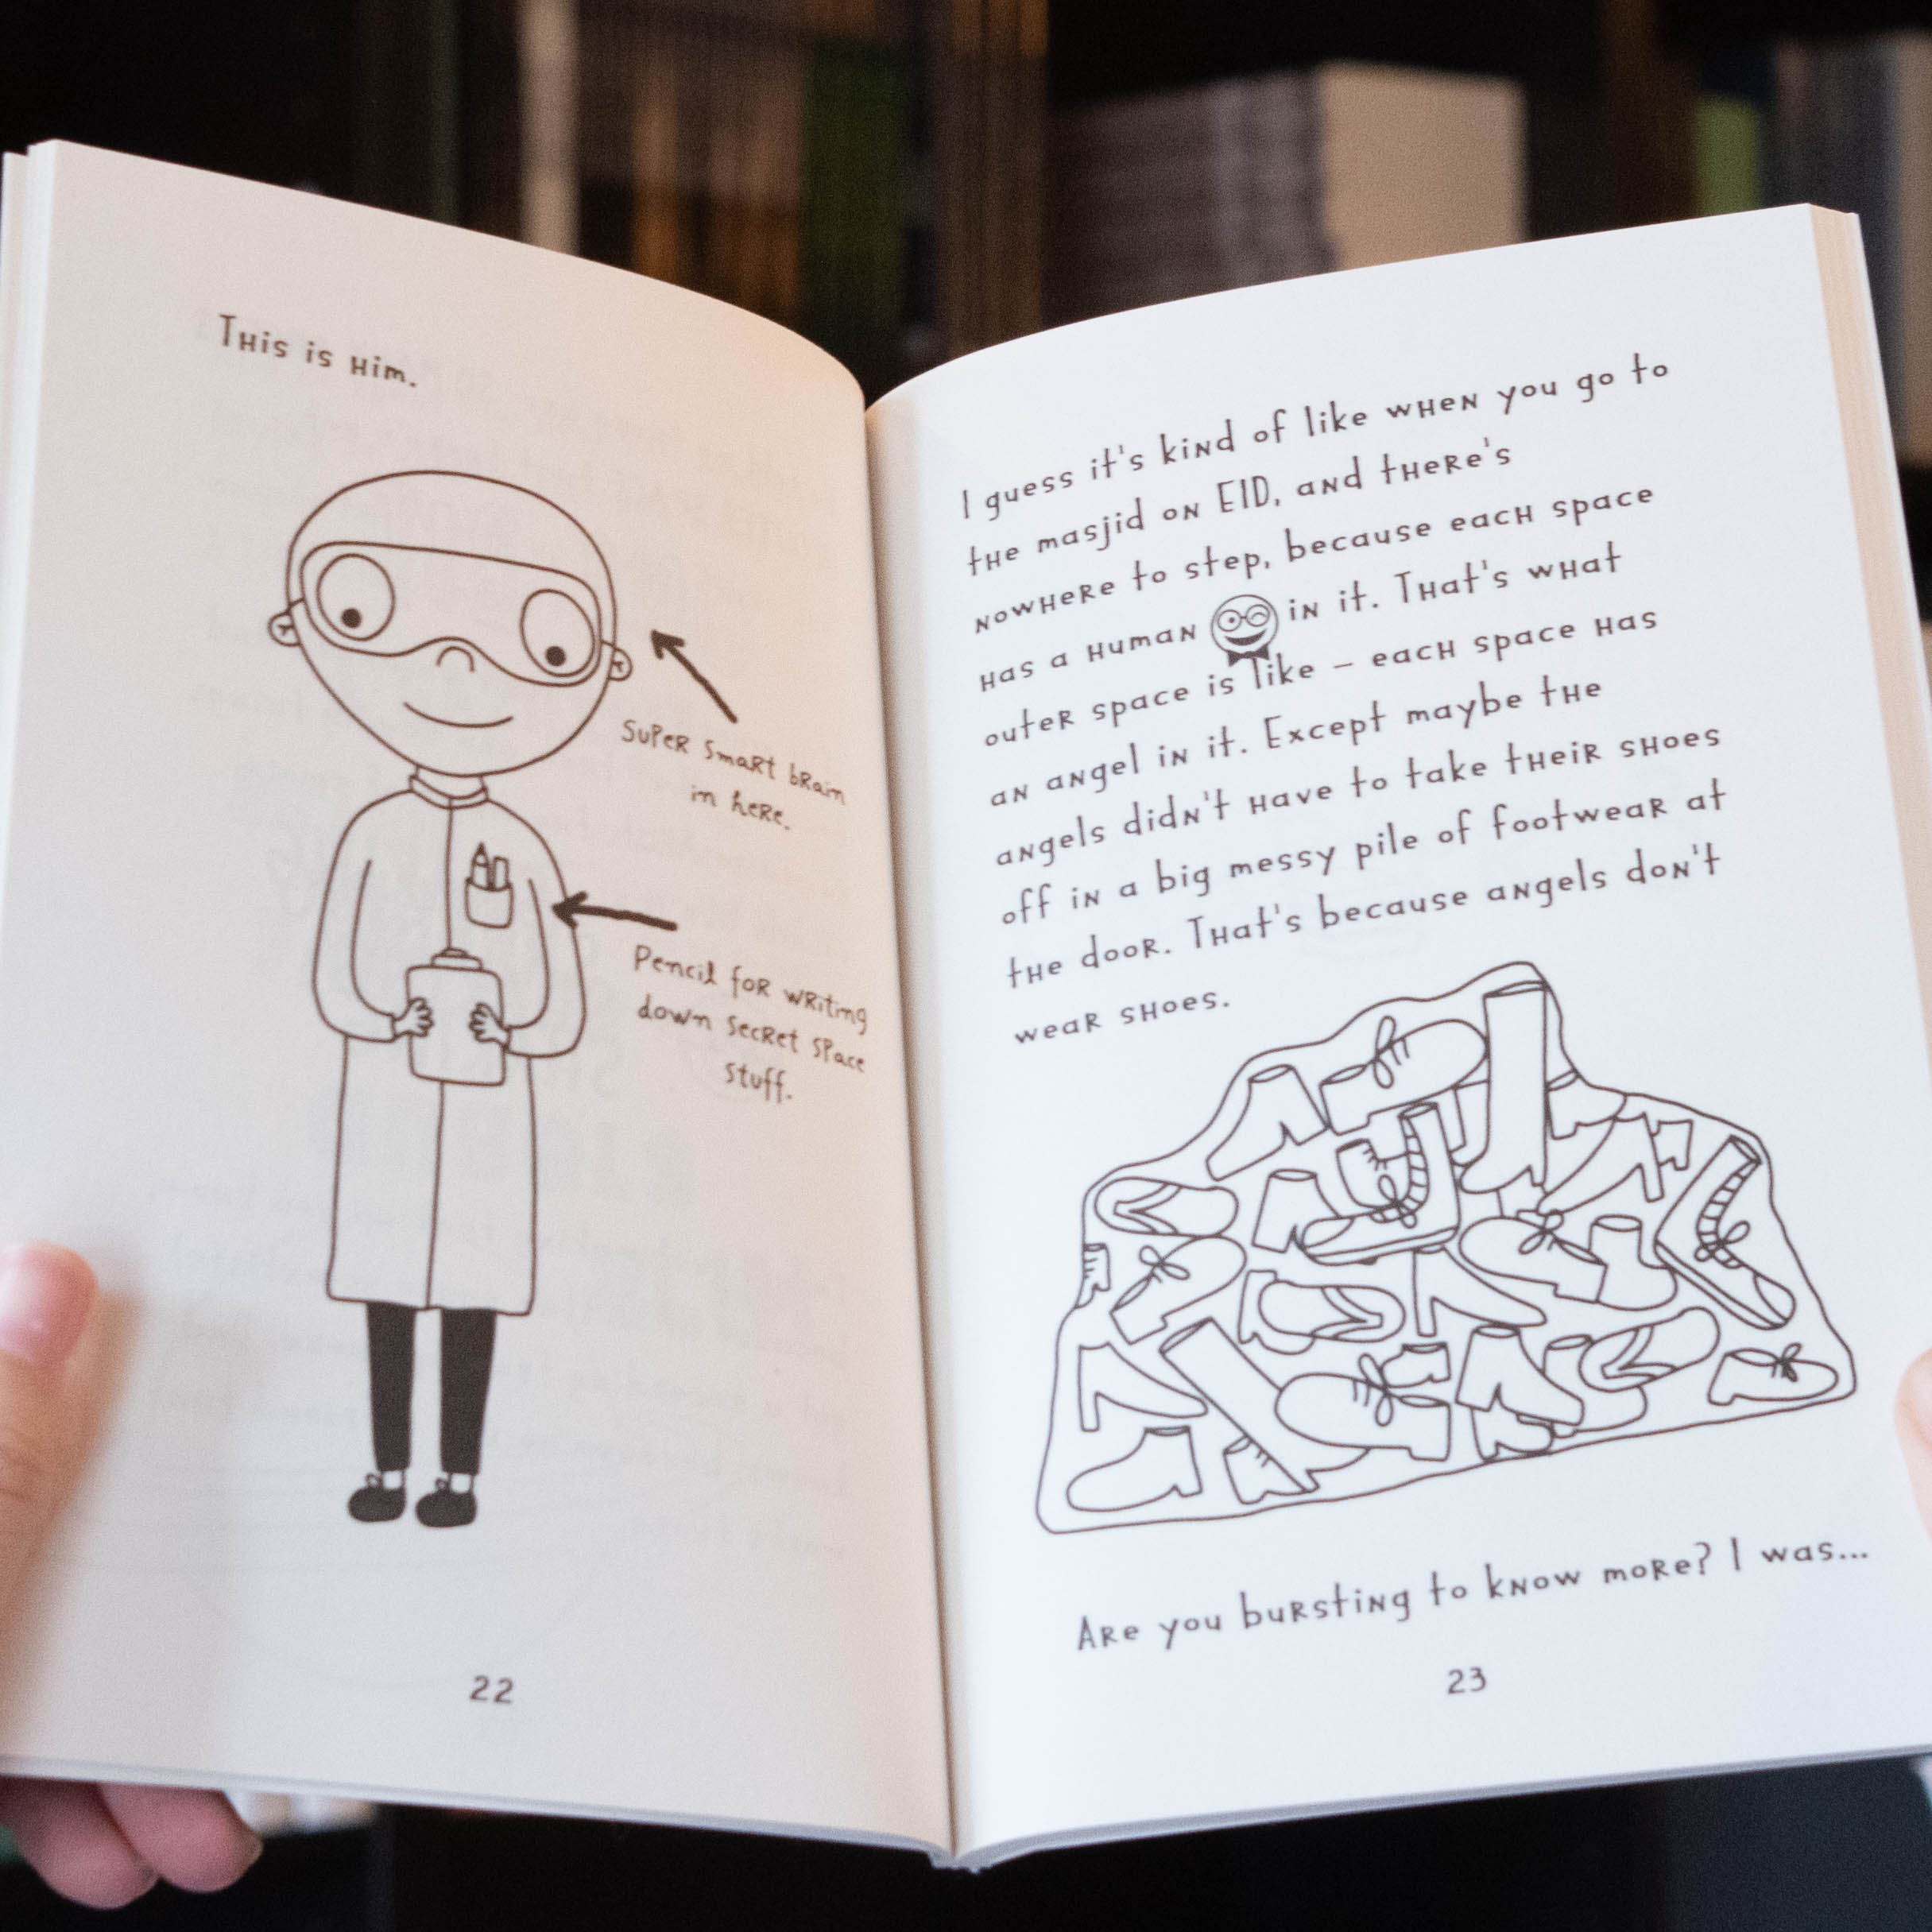 This is him.
Super smart brain
in here.
Pencil for writing
down secret space
stuff.
22
I guess it's kind of like when you go to
the masjid on EID, and there's
nowhere to step, because each space
has a human in it. That's what
outer space is like – each space has
an angel in it. Except maybe the
angels didn't have to take their shoes
off in a big messy pile of footwear at
the door. That's because angels don't
wear shoes.
Are you bursting to know more? I was...
23